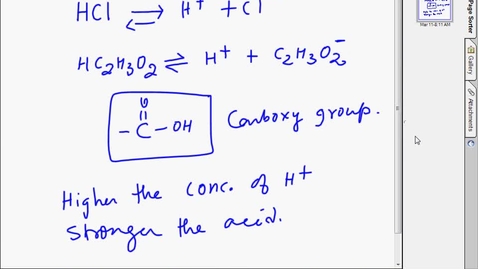 HCl ⇌ H⁺ + Cl
HC₂H₃O₂ ⇌ H⁺ + C₂H₃O₂⁻
O
||
– C – OH Carboxy group.
Higher the conc. of H⁺
Stronger the acid.
Page Sorter
Mar 11-8:11 AM
Gallery
Attachments